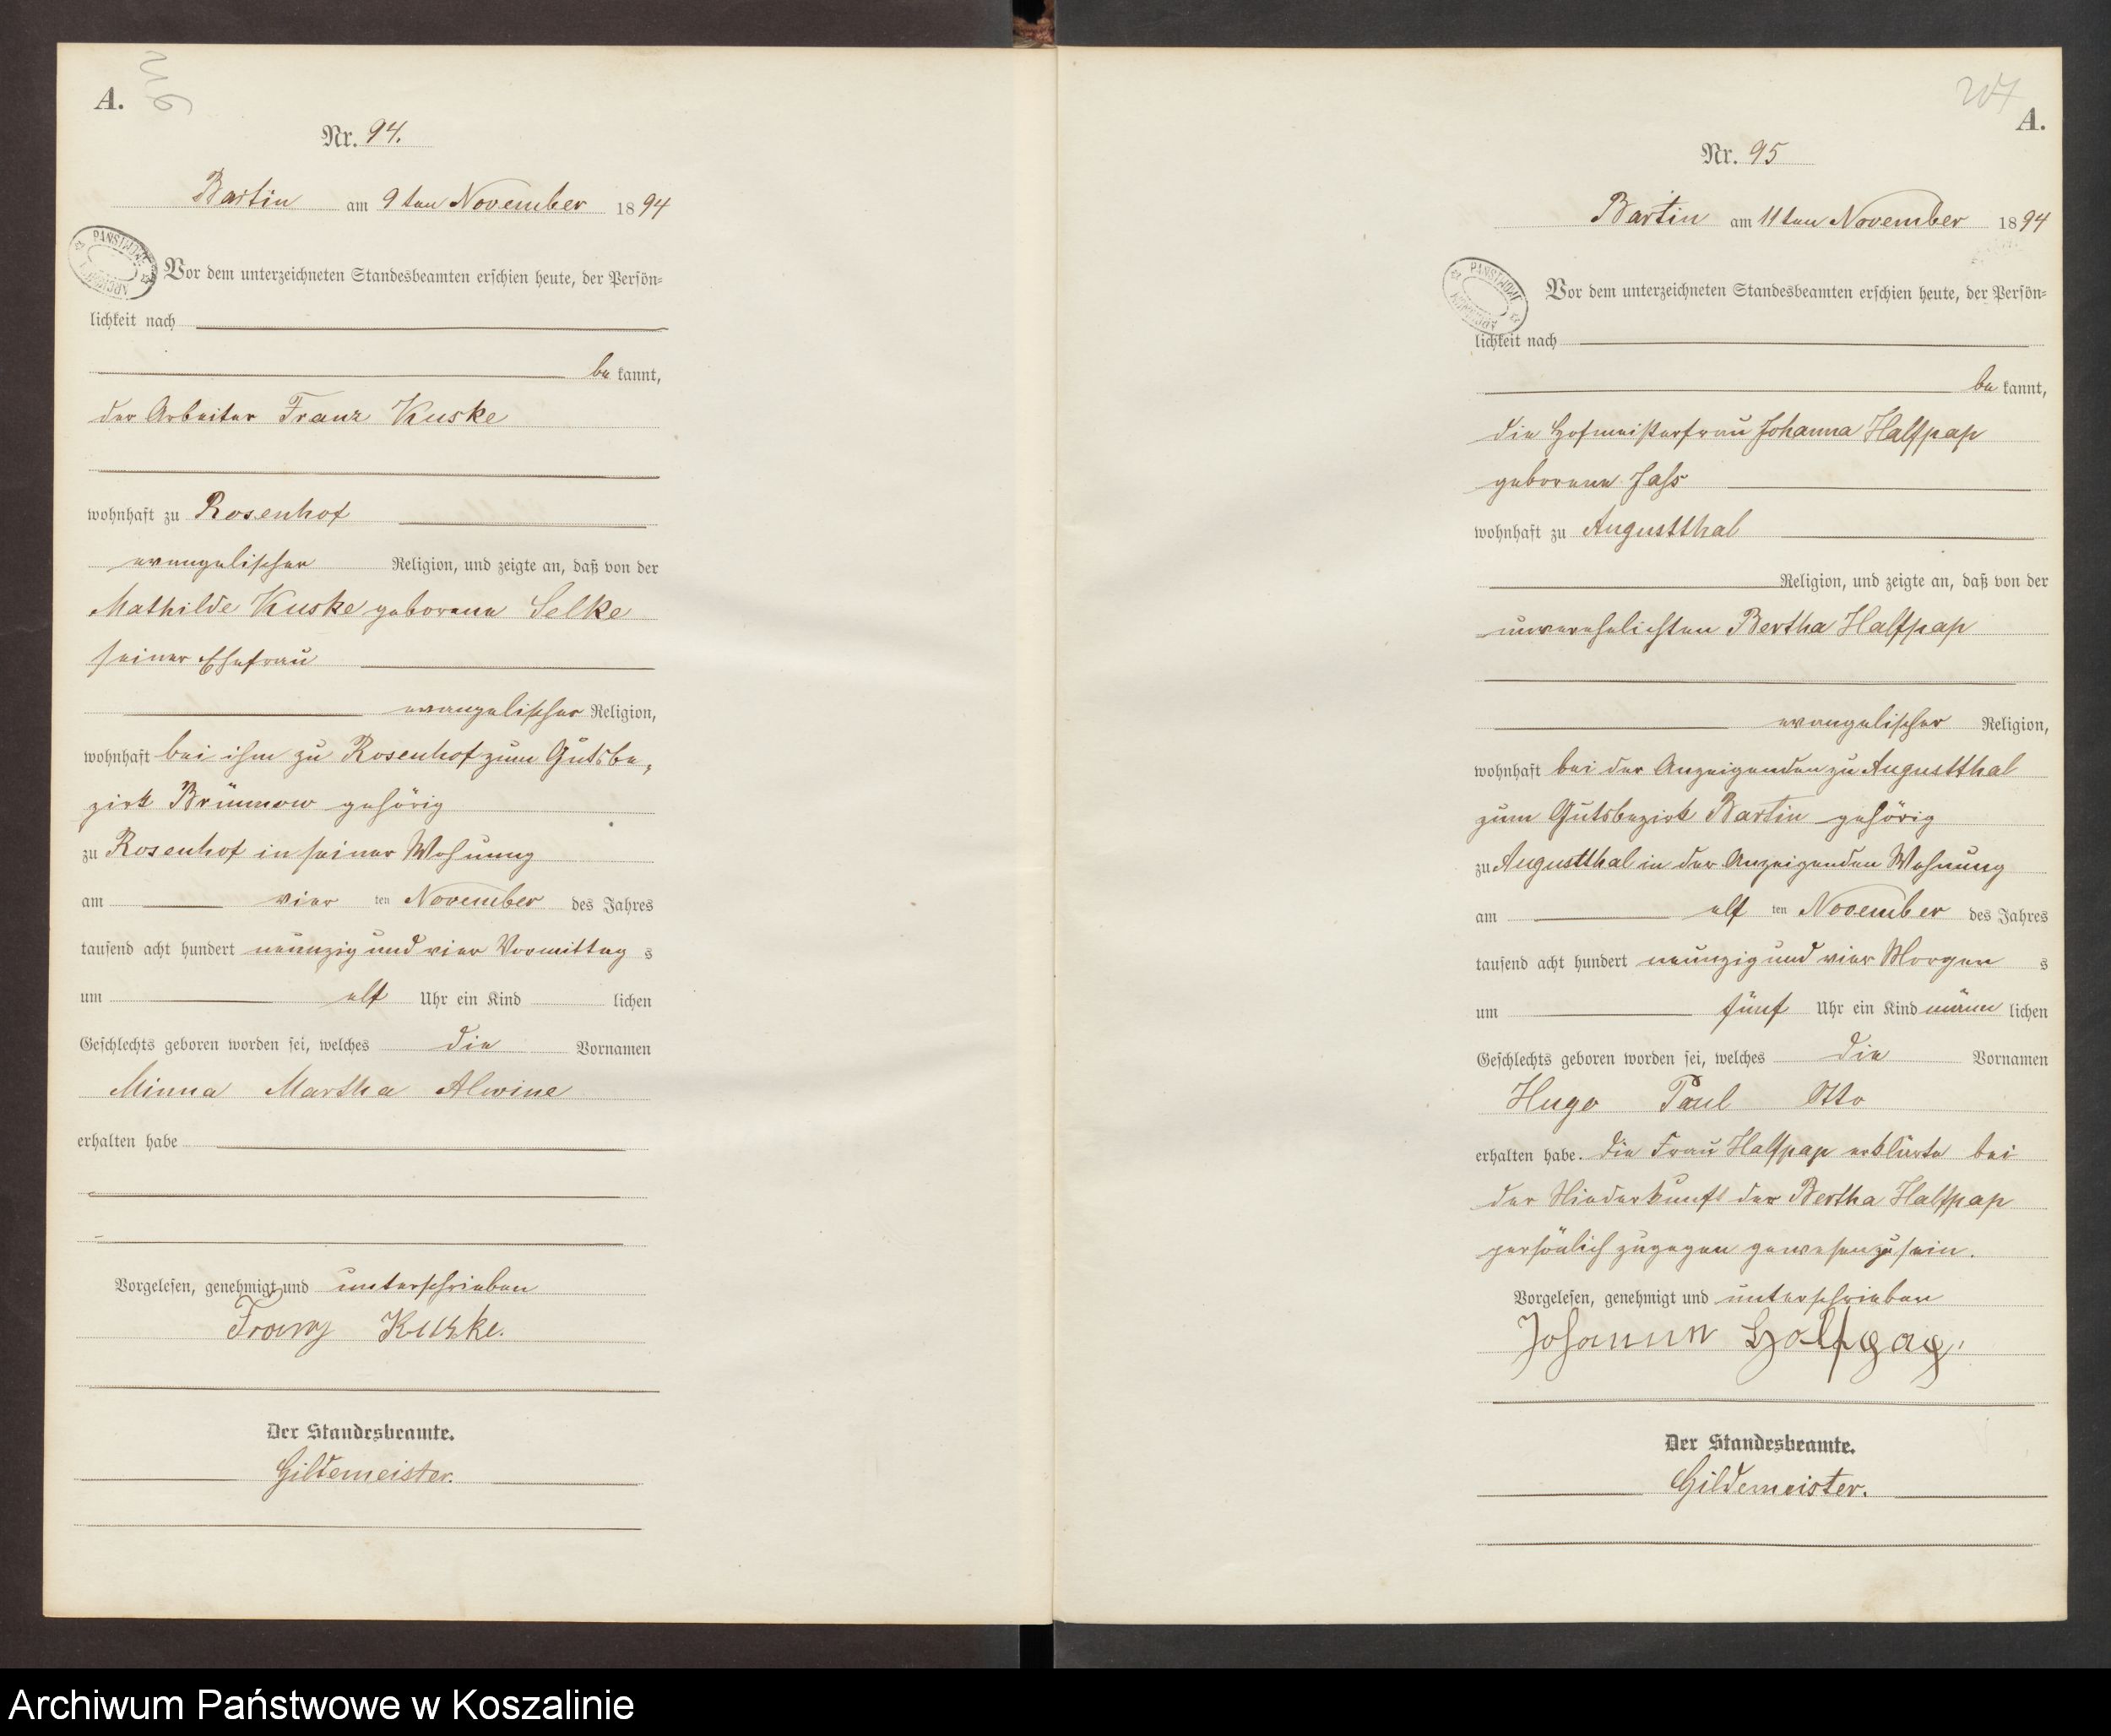 A.
Nr. 94.
Bartin am 9ten November 1894
Vor dem unterzeichneten Standesbeamten erschien heute, der Persön-
lichkeit nach
bekannt,
der Arbeiter Franz Kuske
wohnhaft zu Rosenhof
evangelischer Religion, und zeigte an, daß von der
Mathilde Kuske geborene Selke
seiner Ehefrau
evangelischer Religion,
wohnhaft bei ihm zu Rosenhof zum Gutsbe-
zirk Brünnow gehörig
zu Rosenhof in seiner Wohnung
am vier ten November des Jahres
tausend acht hundert neunzig und vier Vormittag s
um elf Uhr ein Kind lichen
Geschlechts geboren worden sei, welches die Vornamen
Minna Martha Alwine
erhalten habe
Vorgelesen, genehmigt und unterschrieben
Franz Kuske.
Der Standesbeamte.
Gildemeister.
207
A.
Nr. 95
Bartin am 11ten November 1894
Vor dem unterzeichneten Standesbeamten erschien heute, der Persön-
lichkeit nach
bekannt,
die Hofmeisterfrau Johanna Halfpap
geborene Jass
wohnhaft zu Augustthal
Religion, und zeigte an, daß von der
unverehelichten Bertha Halfpap
evangelischer Religion,
wohnhaft bei der Anzeigenden zu Augustthal
zum Gutsbezirk Bartin gehörig
zu Augustthal in der Anzeigenden Wohnung
am elf ten November des Jahres
tausend acht hundert neunzig und vier Morgen s
um fünf Uhr ein Kind männ lichen
Geschlechts geboren worden sei, welches die Vornamen
Hugo Paul Otto
erhalten habe. Die Frau Halfpap erklärte bei
der Niederkunft der Bertha Halfpap
persönlich zugegen gewesen zu sein.
Vorgelesen, genehmigt und unterschrieben
Johann Halfpap.
Der Standesbeamte.
Gildemeister.
Archiwum Państwowe w Koszalinie